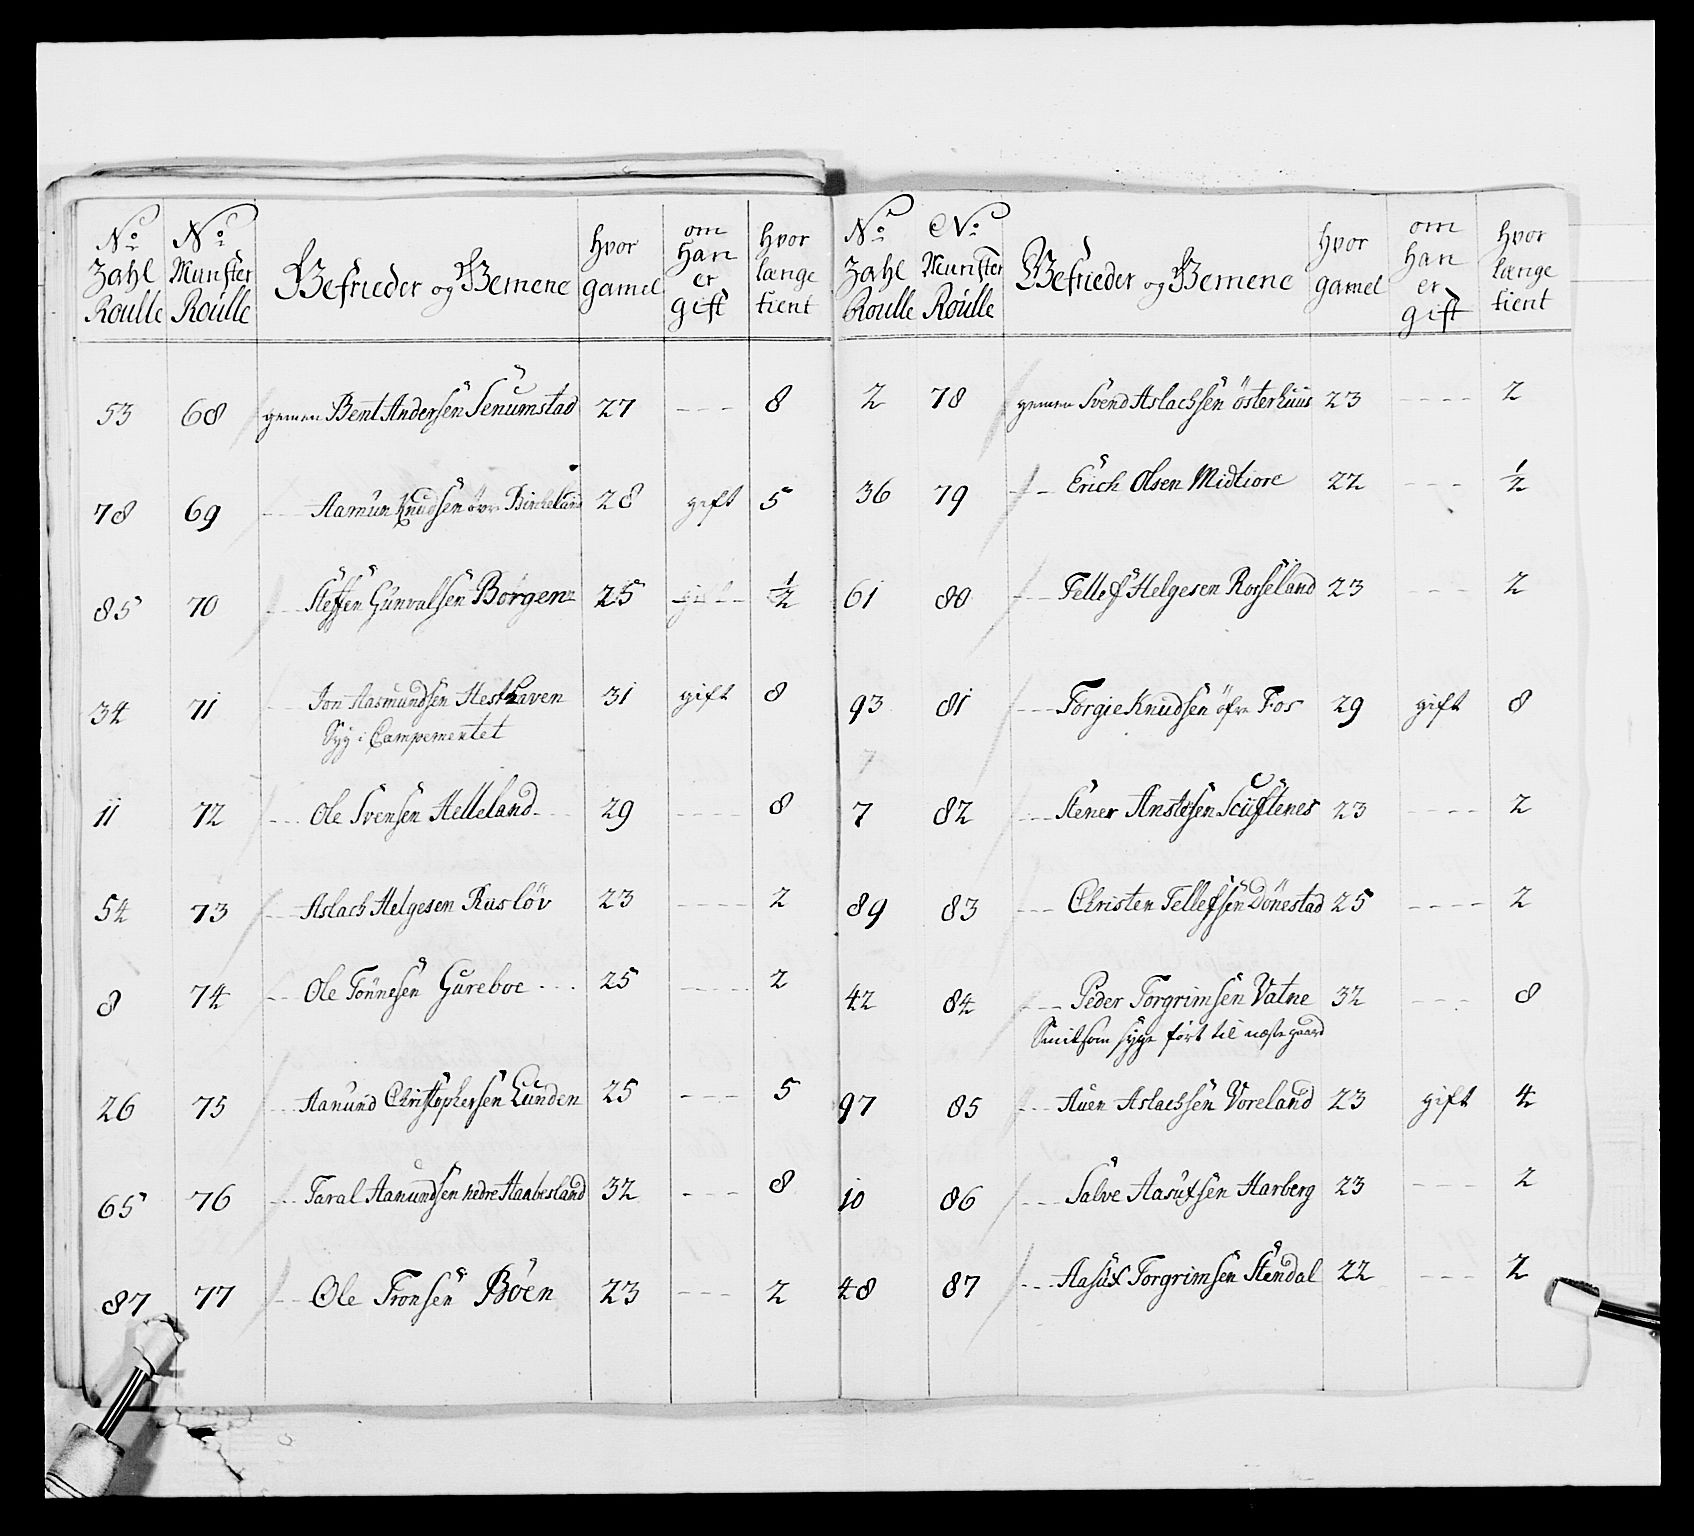 No Zahl Roulle | No Munster Roulle | Befrieder og Gemene | hvor gamel | om han er gift | hvor længe tient
53 68 gemen Bent Andersen Senumstad 27 --- 8
78 69 --- Aamun Knudsen övr Birkeland 28 gift 5
85 70 --- Steffen Gunvalsen Borgen 25 --- 1/2
34 71 --- Jon Aasmundsen Hesthaven 31 gift 8
Syg i Campementet
11 72 --- Ole Svensen Helleland --- 29 --- 8
54 73 --- Aslach Helgesen Rusløv 23 --- 2
8 74 --- Ole Tönnesen Gureboe --- 25 --- 2
26 75 --- Aanund Christophersen Lunden 25 --- 5
65 76 --- Taral Aamundsen nedre Haabesland 32 --- 8
87 77 --- Ole Tronsen Böen 23 --- 2
No Zahl Roulle | No Munster Roulle | Befrieder og Gemene | hvor gamel | om han er gift | hvor længe tient
2 78 gemen Svend Aslachsen österhuus 23 --- 2
36 79 --- Erich Olsen Midtiore 22 --- 1/2
61 80 --- Tellef Helgesen Rosseland 23 --- 2
93 81 --- Torgie Knudsen öfre Fos 29 gift 8
7 82 --- Stener Anstensen Scuftenes 23 --- 2
89 83 --- Christen Tellefsen Dönestad 25 --- 2
42 84 --- Peder Torgrimsen Vatne 32 --- 8
som syge ført til næste gaard
97 85 --- Auen Aslachsen Voreland 23 gift 4
10 86 --- Salve Aasulfsen Harberg 23 --- 2
48 87 --- Aasulf Torgrimsen Stendal 22 --- 2